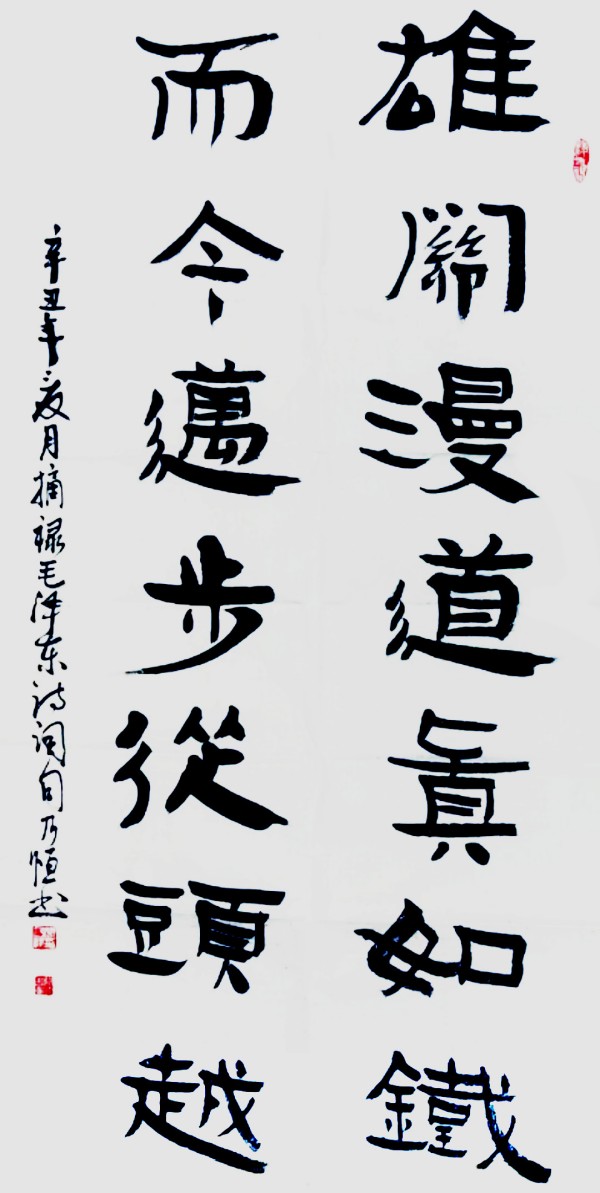 雄關漫道真如鐵
而今邁步從頭越
辛丑年夏月摘録毛泽东诗词句乃恒书